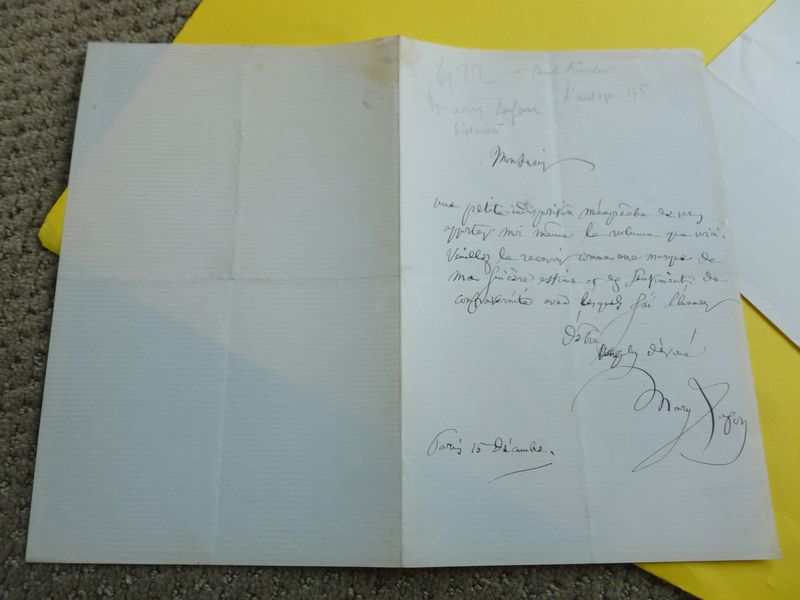 à Paul Foucher
Mary Lafon
historien
Monsieur
une petite indisposition m'empêche de vous
apporter moi même le volume que voici.
Veuillez le recevoir comme une marque de
ma sincère estime et des sentiments de
confraternité avec lesquels j'ai l'honneur
d'être
dévoué
Mary Lafon
Paris 15 décembre.